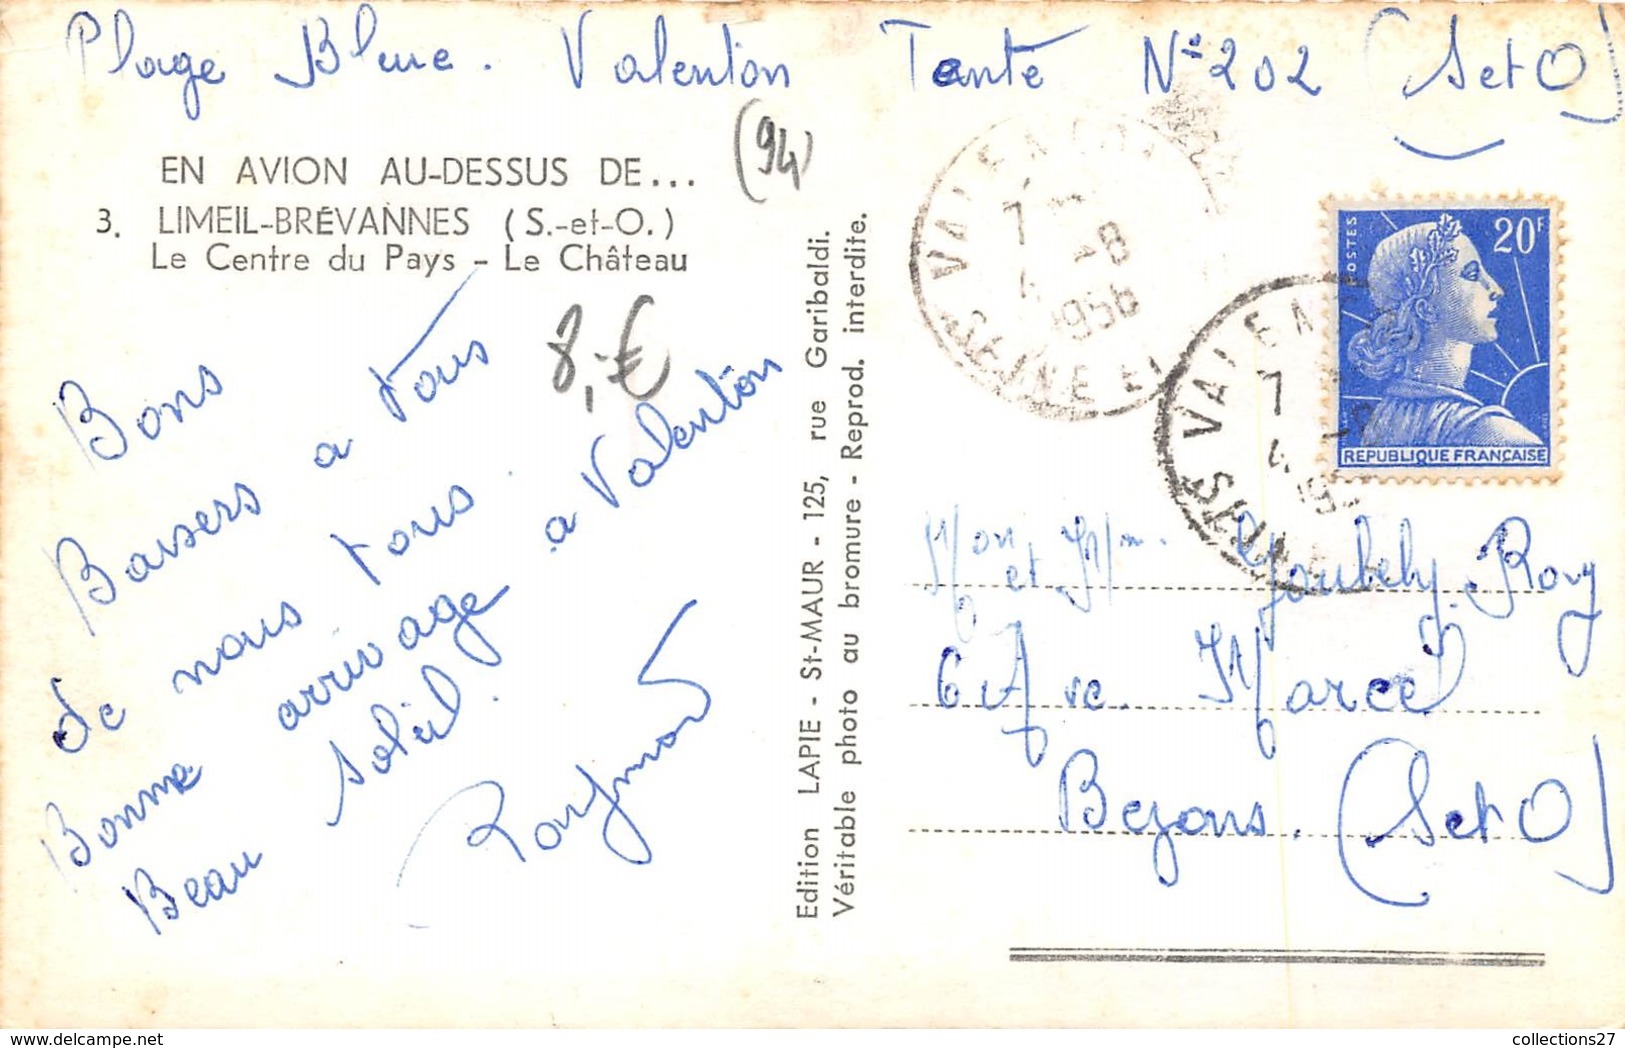 Plage Bleue. Valenton Tente Nº 202 (S et O)
(94)
EN AVION AU-DESSUS DE...
3. LIMEIL-BRÉVANNES (S.-et-O.)
Le Centre du Pays - Le Château
8,-€
Bons
Baisers a tous
de nous tous.
Bonne arrivage a Valenton
Beau Soleil.
Raymond
Edition LAPIE - St-MAUR - 125, rue Garibaldi.
Véritable photo au bromure - Reprod. interdite.
VALENTON
7
4 -8
1956
SEINE ET
POSTES
20F
REPUBLIQUE FRANÇAISE
VALENT
7
4 -8
195
SEINE
Mon, et Mm. Roby
6 Ave. Marcel
Bezons. (S et O)
collections27